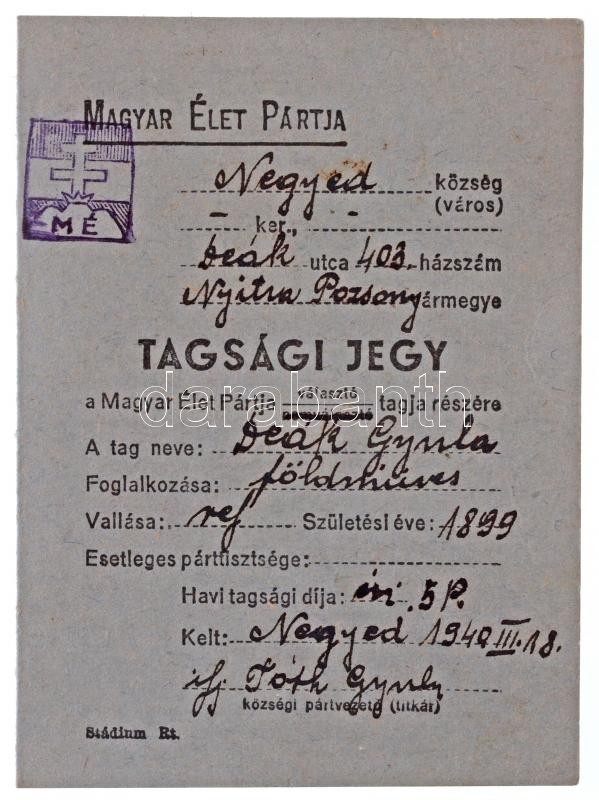 MAGYAR ÉLET PÁRTJA
MÉ
Negyed község
(város)
– ker., –
Deák utca 403. házszám
Nyitra Pozsony ármegye
TAGSÁGI JEGY
választó
a Magyar Élet Pártja tagja részére
A tag neve: Deák Gyula
Foglalkozása: földműves
Vallása: ref Születési éve: 1899
Esetleges párttisztsége:
Havi tagsági díja: évi 5 P.
Kelt: Negyed 1940 III. 18.
ifj Tóth Gyula
községi pártvezető (titkár)
Stádium Rt.
darabanth